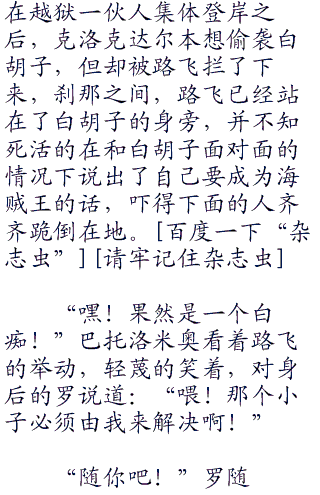 在越狱一伙人集体登岸之
后，克洛克达尔本想偷袭白
胡子，但却被路飞拦了下
来，刹那之间，路飞已经站
在了白胡子的身旁，并不知
死活的在和白胡子面对面的
情况下说出了自己要成为海
贼王的话，吓得下面的人齐
齐跪倒在地。[百度一下“杂
志虫”][请牢记住杂志虫]
“嘿！果然是一个白
痴！”巴托洛米奥看着路飞
的举动，轻蔑的笑着，对身
后的罗说道：“喂！那个小
子必须由我来解决啊！”
“随你吧！”罗随